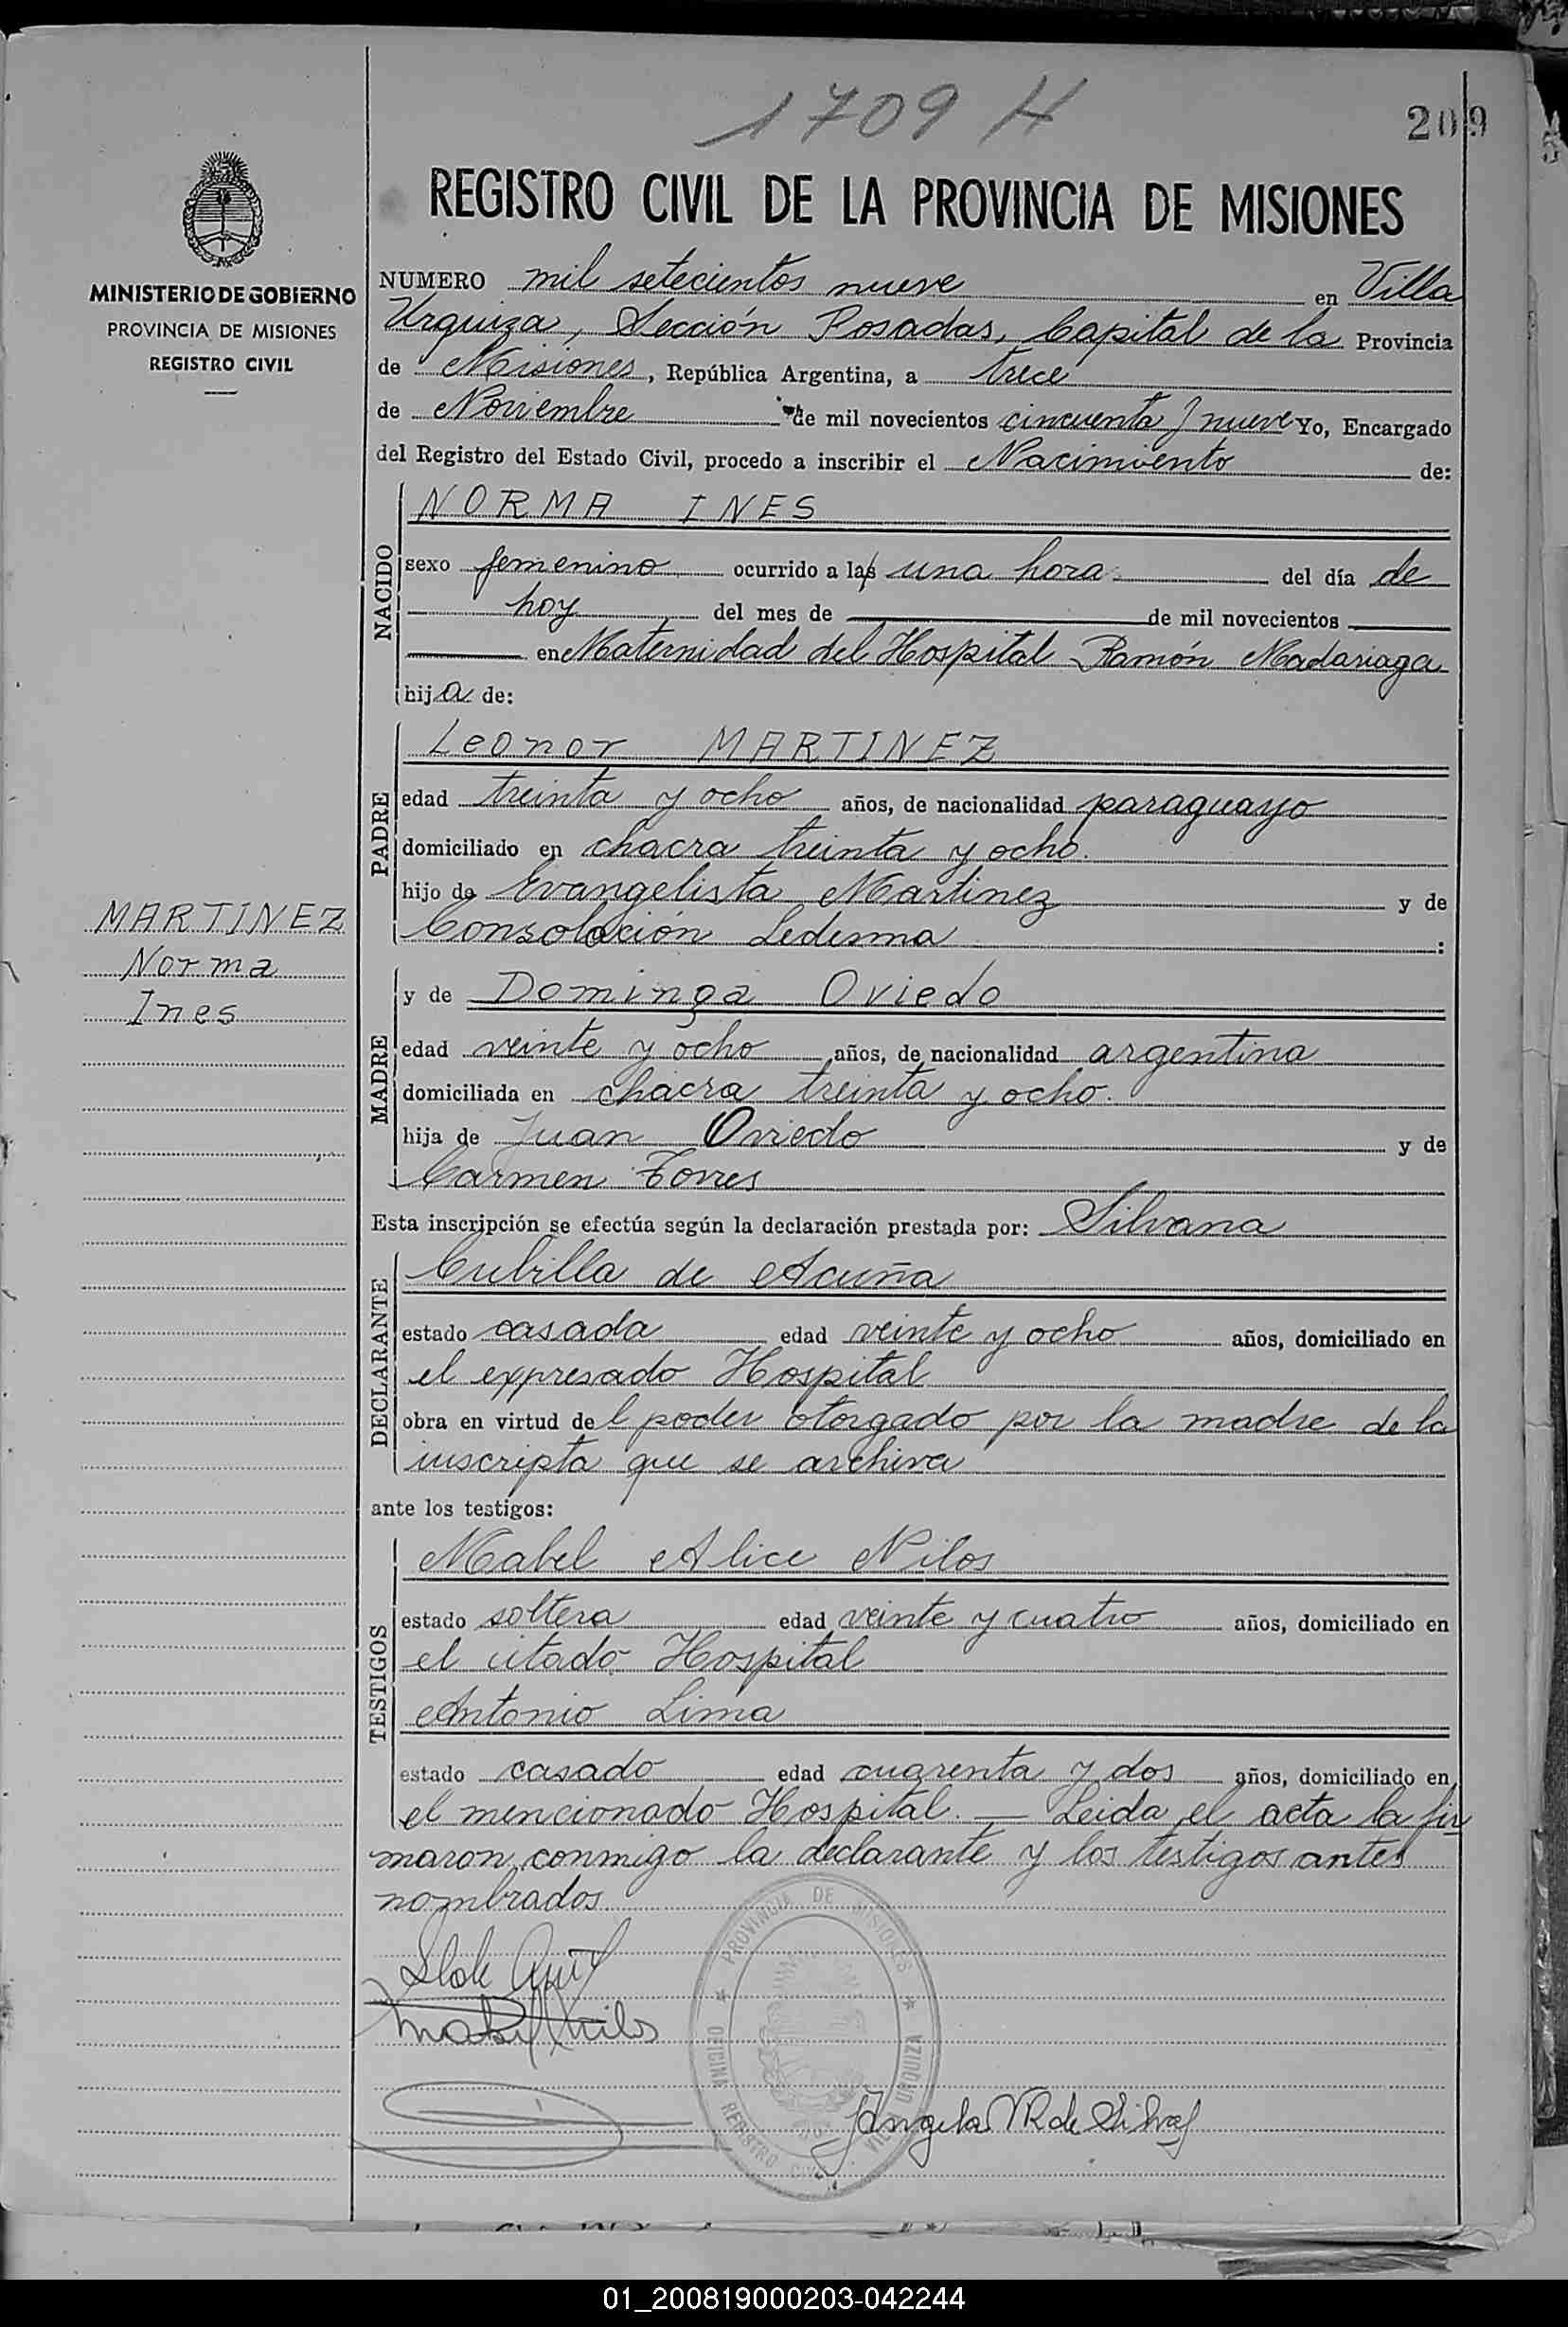 1709 H
209
REGISTRO CIVIL DE LA PROVINCIA DE MISIONES
MINISTERIO DE GOBIERNO
PROVINCIA DE MISIONES
REGISTRO CIVIL
NUMERO mil setecientos nueve en Villa
Urquiza, Sección Posadas, Capital de la Provincia
de Misiones, República Argentina, a trece
de Noviembre de mil novecientos cincuenta y nueve Yo, Encargado
del Registro del Estado Civil, procedo a inscribir el Nacimiento de:
NACIDO
NORMA INES
sexo femenino ocurrido a las una hora del día de
hoy del mes de de mil novecientos
en Maternidad del Hospital Ramón Madariaga
hija de:
PADRE
Leonor MARTINEZ
edad treinta y ocho años, de nacionalidad paraguayo
domiciliado en chacra treinta y ocho.
hijo de Evangelista Martinez y de
Consolación Ledesma :
MARTINEZ
Norma
Ines
MADRE
y de Dominga Oviedo
edad veinte y ocho años, de nacionalidad argentina
domiciliada en chacra treinta y ocho.
hija de Juan Oviedo y de
Carmen Torres
Esta inscripción se efectúa según la declaración prestada por: Silvana
DECLARANTE
Cubilla de Acuña
estado casada edad veinte y ocho años, domiciliado en
el expresado Hospital
obra en virtud del poder otorgado por la madre de la
inscripta que se archiva
ante los testigos:
TESTIGOS
Mabel Alice Nilos
estado soltera edad veinte y cuatro años, domiciliado en
el citado Hospital
Antonio Lima
estado casado edad cuarenta y dos años, domiciliado en
el mencionado Hospital. — Leida el acta la fir
maron conmigo la declarante y los testigos antes
nombrados
PROVINCIA DE MISIONES
OFICINA REGISTRO CIVIL VILLA URQUIZA
Angela VR de Silva
01_200819000203-042244